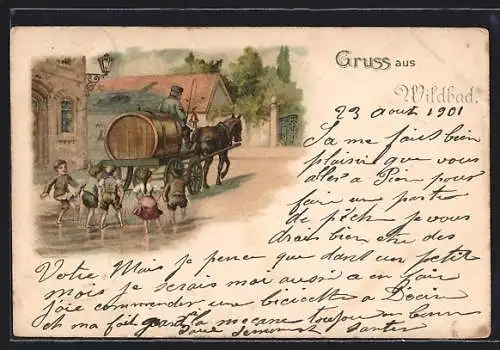 Gruss aus
Wildbad.
23 aout 1901
Sa me fait bien
plaisir que vous
allez a Pien pour
faire un partie
de pêch je vous
drais bien etre des
Votre Mais je pense que dant un petit
mois je serais moi aussi a en faire
joie commender une bicicelte a
et ma foi la mecane toujou